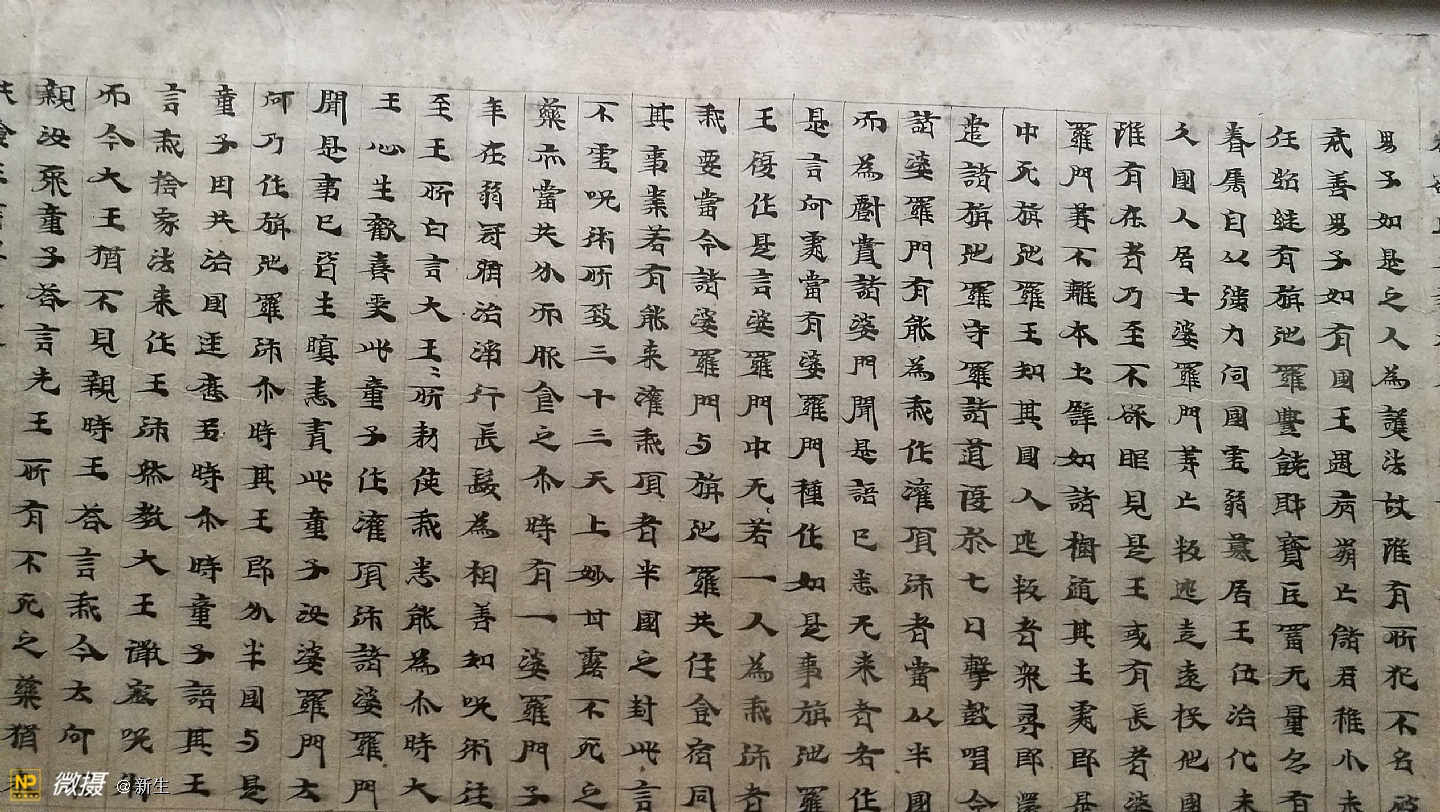 男子如是之人為護法故雖有所犯不名破
戒善男子如有國王遇病崩亡儲君稚小未
任紹継有旃陁羅豐饒財寶巨富无量多有
眷屬自以強力伺國虛弱篡居王位治化未
久國人居士婆羅門等亡叛逃走遠投他國
雖有在者乃至不欲眼見是王或有長者婆
羅門等不離本土譬如諸樹随其生處即是
中死旃陁羅王知其國人逃叛者衆尋即還
遣諸旃陁羅守邏諸道復於七日擊鼓唱令
諸婆羅門有能為我作灌頂師者當以半國
而為爵賞諸婆門聞是語已悉无来者各作
是言何處當有婆羅門種作如是事旃陁羅
王復作是言婆羅門中无若一人為我師者
我要當令諸婆羅門与旃陁羅共住食宿同
其事業若有能来灌我頂者半國之封此言
不虛呪術所致三十三天上妙甘露不死之
藥亦當共分而服食之尒時有一婆羅門子
年在弱冠脩治淨行長髮為相善知呪術往
至王所白言大王〻所勅使我悉能為尒時大
王心生歡喜受此童子作灌頂師諸婆羅門
聞是事已皆生瞋恚責此童子汝婆羅門云
何乃作旃陁羅師尒時其王即分半國与是
童子因共治國逕歷多時尒時童子語其王
言我捨家法来作王師然教大王微密呪術
而今大王猶不見親時王荅言我今云何
親汝耶童子荅言先王所有不死之藥猶
微摄 @新生